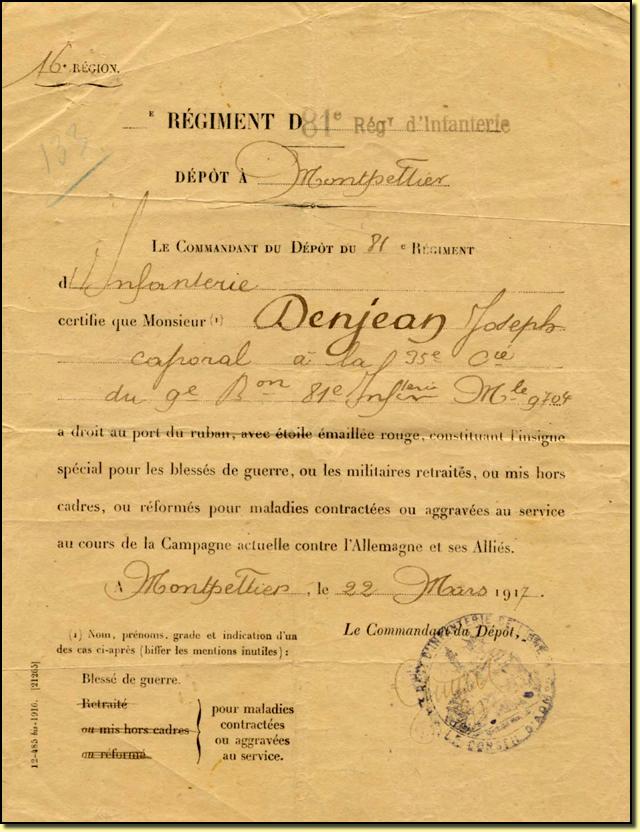 16e RÉGION.
133
E RÉGIMENT D 81e Régt d'Infanterie
DÉPÔT À Montpellier
LE COMMANDANT DU DÉPÔT DU 81 e RÉGIMENT
d'Infanterie
certifie que Monsieur (1) Denjean Joseph
caporal à la 35e Cie
du 9e Bon 81e Infterie Mle 9704
a droit au port du ruban, avec étoile émaillée rouge, constituant l'insigne
spécial pour les blessés de guerre, ou les militaires retraités, ou mis hors
cadres, ou réformés pour maladies contractées ou aggravées au service
au cours de la Campagne actuelle contre l'Allemagne et ses Alliés.
A Montpellier, le 22 Mars 1917.
Le Commandant du Dépôt,
(1) Nom, prénoms, grade et indication d'un
des cas ci-après (biffer les mentions inutiles) :
Blessé de guerre.
Retraité
ou mis hors cadres
ou réformé
pour maladies
contractées
ou aggravées
au service.
RÉGT D'INFANTERIE DE LIGNE
LE CONSEIL
12-485 bis-1916. [21265]